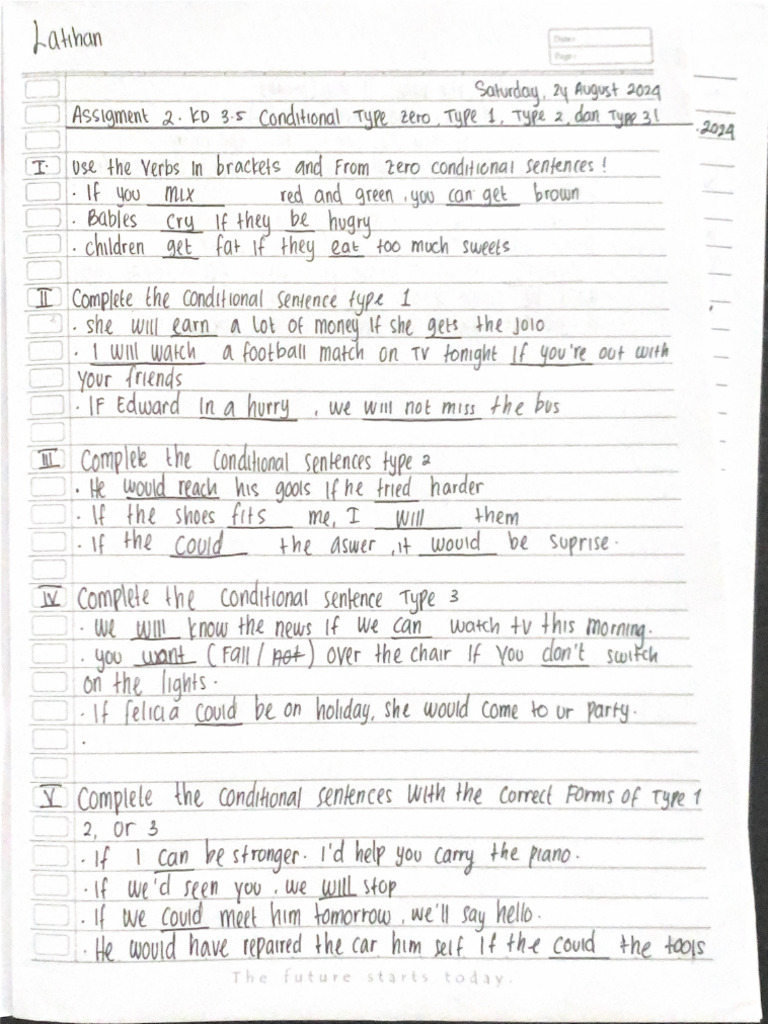 Latihan
Date:
Page:
Saturday, 24 August 2024
Assigment 2. KD 3.5 Conditional Type zero, Type 1, Type 2, dan Type 3!
.2024
I. Use the Verbs In brackets and From zero conditional sentences!
· If you mix red and green, you can get brown
· Babies cry If they be hugry
· children get fat if they eat too much sweets
II Complete the conditional sentence type 1
· she will earn a lot of money If she gets the Jolo
· I will watch a football match on TV tonight If you're out with
your friends
· IF Edward In a hurry, we will not miss the bus
III Complete the Conditional sentences type 2
· He would reach his goals If he tried harder
· If the shoes fits me, I will them
· If the could the aswer, it would be suprise.
IV Complete the conditional sentence Type 3
· We will know the news if we can watch tv this morning.
· you want (Fall / not) over the chair If you don't switch
on the lights.
· If felicia could be on holiday, she would come to ur party.
.
V Complete the conditional sentences With the correct Forms of Type 1
2, or 3
· If I can be stronger. I'd help you carry the piano.
· If we'd seen you, we will stop
· If we could meet him tomorrow, we'll say hello.
· He would have repaired the car him self If the could the tools
The future starts today.